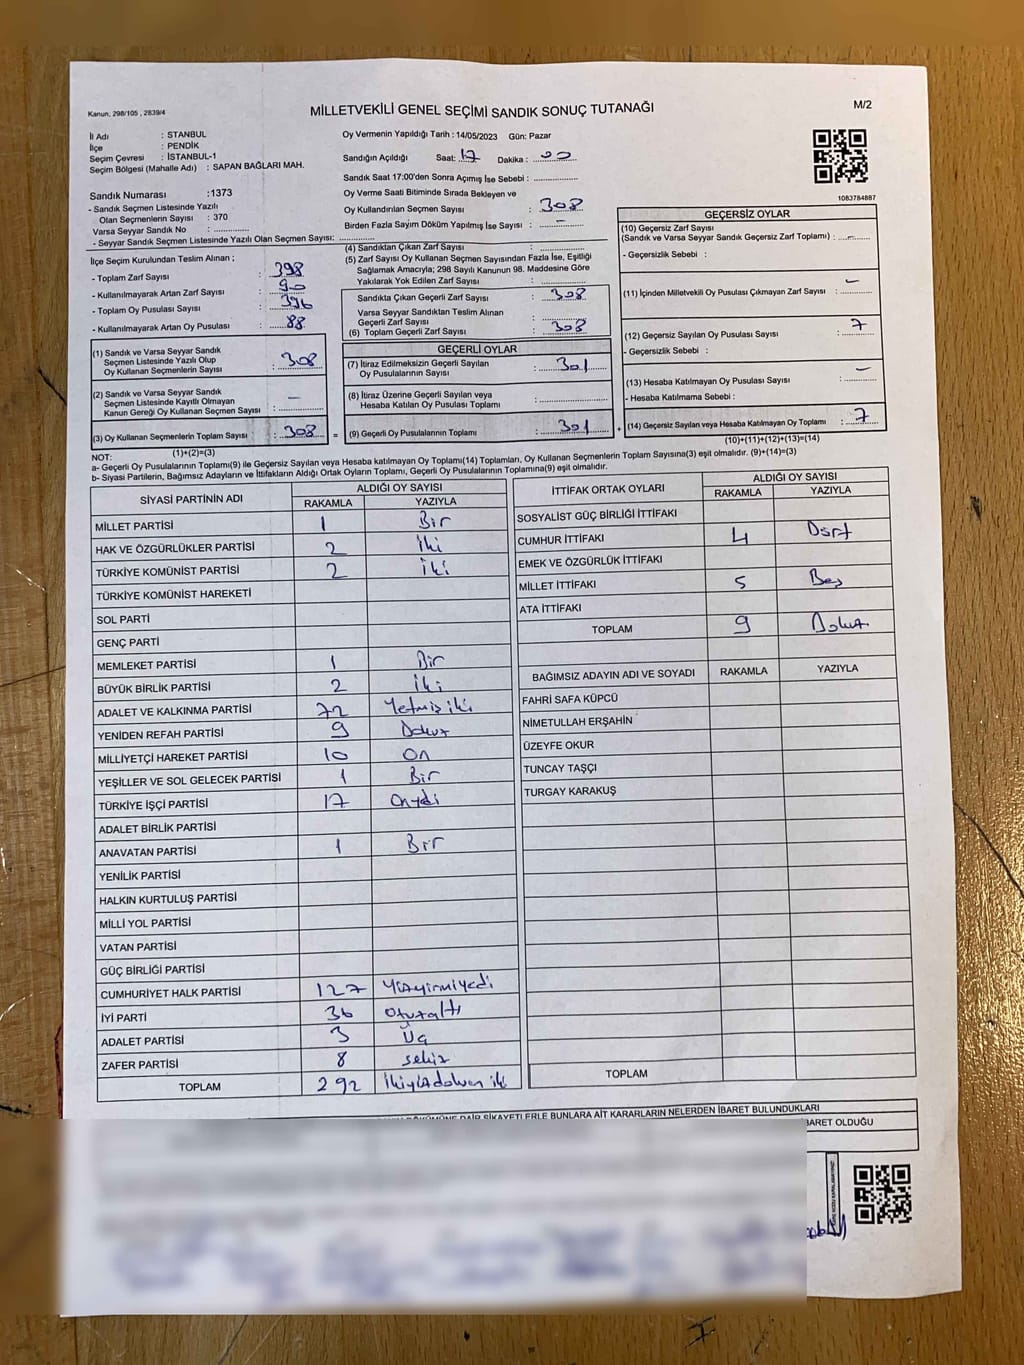 Kanun, 298/105 , 2839/4
MİLLETVEKİLİ GENEL SEÇİMİ SANDIK SONUÇ TUTANAĞI
M/2
İl Adı : STANBUL
İlçe : PENDİK
Seçim Çevresi : İSTANBUL-1
Seçim Bölgesi (Mahalle Adı) : SAPAN BAĞLARI MAH.
Sandık Numarası :1373
- Sandık Seçmen Listesinde Yazılı
Olan Seçmenlerin Sayısı : 370
Varsa Seyyar Sandık No : ..............
- Seyyar Sandık Seçmen Listesinde Yazılı Olan Seçmen Sayısı: ..............
Oy Vermenin Yapıldığı Tarih : 14/05/2023 Gün: Pazar
Sandığın Açıldığı Saat: 17 Dakika : 00
Sandık Saat 17:00'den Sonra Açımış İse Sebebi : ..............
Oy Verme Saati Bitiminde Sırada Bekleyen ve
Oy Kullandırılan Seçmen Sayısı : 308
Birden Fazla Sayım Döküm Yapılmış İse Sayısı : –
1083784887
İlçe Seçim Kurulundan Teslim Alınan ;
- Toplam Zarf Sayısı : 398
- Kullanılmayarak Artan Zarf Sayısı : 90
- Toplam Oy Pusulası Sayısı : 396
- Kullanılmayarak Artan Oy Pusulası : 88
(1) Sandık ve Varsa Seyyar Sandık
Seçmen Listesinde Yazılı Olup
Oy Kullanan Seçmenlerin Sayısı : 308
(2) Sandık ve Varsa Seyyar Sandık
Seçmen Listesinde Kayıtlı Olmayan
Kanun Gereği Oy Kullanan Seçmen Sayısı : –
(3) Oy Kullanan Seçmenlerin Toplam Sayısı : 308
(1)+(2)=(3)
(4) Sandıktan Çıkan Zarf Sayısı : ..............
(5) Zarf Sayısı Oy Kullanan Seçmen Sayısından Fazla İse, Eşitliği
Sağlamak Amacıyla; 298 Sayılı Kanunun 98. Maddesine Göre
Yakılarak Yok Edilen Zarf Sayısı : ..............
Sandıkta Çıkan Geçerli Zarf Sayısı : 308
Varsa Seyyar Sandıktan Teslim Alınan
Geçerli Zarf Sayısı : ..............
(6) Toplam Geçerli Zarf Sayısı : 308
GEÇERLİ OYLAR
(7) İtiraz Edilmeksizin Geçerli Sayılan
Oy Pusulalarının Sayısı : 301
(8) İtiraz Üzerine Geçerli Sayılan veya
Hesaba Katılan Oy Pusulası Toplamı : ..............
= (9) Geçerli Oy Pusulalarının Toplamı : 301 +
GEÇERSİZ OYLAR
(10) Geçersiz Zarf Sayısı
(Sandık ve Varsa Seyyar Sandık Geçersiz Zarf Toplamı) : –
- Geçersizlik Sebebi :
(11) İçinden Milletvekili Oy Pusulası Çıkmayan Zarf Sayısı : –
(12) Geçersiz Sayılan Oy Pusulası Sayısı : 7
- Geçersizlik Sebebi :
(13) Hesaba Katılmayan Oy Pusulası Sayısı : –
- Hesaba Katılmama Sebebi :
(14) Geçersiz Sayılan veya Hesaba Katılmayan Oy Toplamı : 7
(10)+(11)+(12)+(13)=(14)
NOT:
a- Geçerli Oy Pusulalarının Toplamı(9) ile Geçersiz Sayılan veya Hesaba katılmayan Oy Toplamı(14) Toplamları, Oy Kullanan Seçmenlerin Toplam Sayısına(3) eşit olmalıdır. (9)+(14)=(3)
b- Siyasi Partilerin, Bağımsız Adayların ve İttifakların Aldığı Ortak Oyların Toplamı, Geçerli Oy Pusulalarının Toplamına(9) eşit olmalıdır.
SİYASİ PARTİNİN ADI ALDIĞI OY SAYISI
RAKAMLA YAZIYLA
MİLLET PARTİSİ 1 Bir
HAK VE ÖZGÜRLÜKLER PARTİSİ 2 İki
TÜRKİYE KOMÜNİST PARTİSİ 2 İki
TÜRKİYE KOMÜNİST HAREKETİ
SOL PARTİ
GENÇ PARTİ
MEMLEKET PARTİSİ 1 Bir
BÜYÜK BİRLİK PARTİSİ 2 İki
ADALET VE KALKINMA PARTİSİ 72 Yetmiş iki
YENİDEN REFAH PARTİSİ 9 Dokuz
MİLLİYETÇİ HAREKET PARTİSİ 10 On
YEŞİLLER VE SOL GELECEK PARTİSİ 1 Bir
TÜRKİYE İŞÇİ PARTİSİ 17 Onyedi
ADALET BİRLİK PARTİSİ
ANAVATAN PARTİSİ 1 Bir
YENİLİK PARTİSİ
HALKIN KURTULUŞ PARTİSİ
MİLLİ YOL PARTİSİ
VATAN PARTİSİ
GÜÇ BİRLİĞİ PARTİSİ
CUMHURİYET HALK PARTİSİ 127 Yüzyirmiyedi
İYİ PARTİ 36 Otuzaltı
ADALET PARTİSİ 3 Üç
ZAFER PARTİSİ 8 sekiz
TOPLAM 292 İkiyüzdoksan iki
İTTİFAK ORTAK OYLARI ALDIĞI OY SAYISI
RAKAMLA YAZIYLA
SOSYALİST GÜÇ BİRLİĞİ İTTİFAKI
CUMHUR İTTİFAKI 4 Dört
EMEK VE ÖZGÜRLÜK İTTİFAKI
MİLLET İTTİFAKI 5 Beş
ATA İTTİFAKI
TOPLAM 9 Dokuz
BAĞIMSIZ ADAYIN ADI VE SOYADI RAKAMLA YAZIYLA
FAHRİ SAFA KÜPCÜ
NİMETULLAH ERŞAHİN
ÜZEYFE OKUR
TUNCAY TAŞÇI
TURGAY KARAKUŞ
TOPLAM
DÖKÜMÜNE DAİR ŞİKAYETLERLE BUNLARA AİT KARARLARIN NELERDEN İBARET BULUNDUKLARI
BARET OLDUĞU